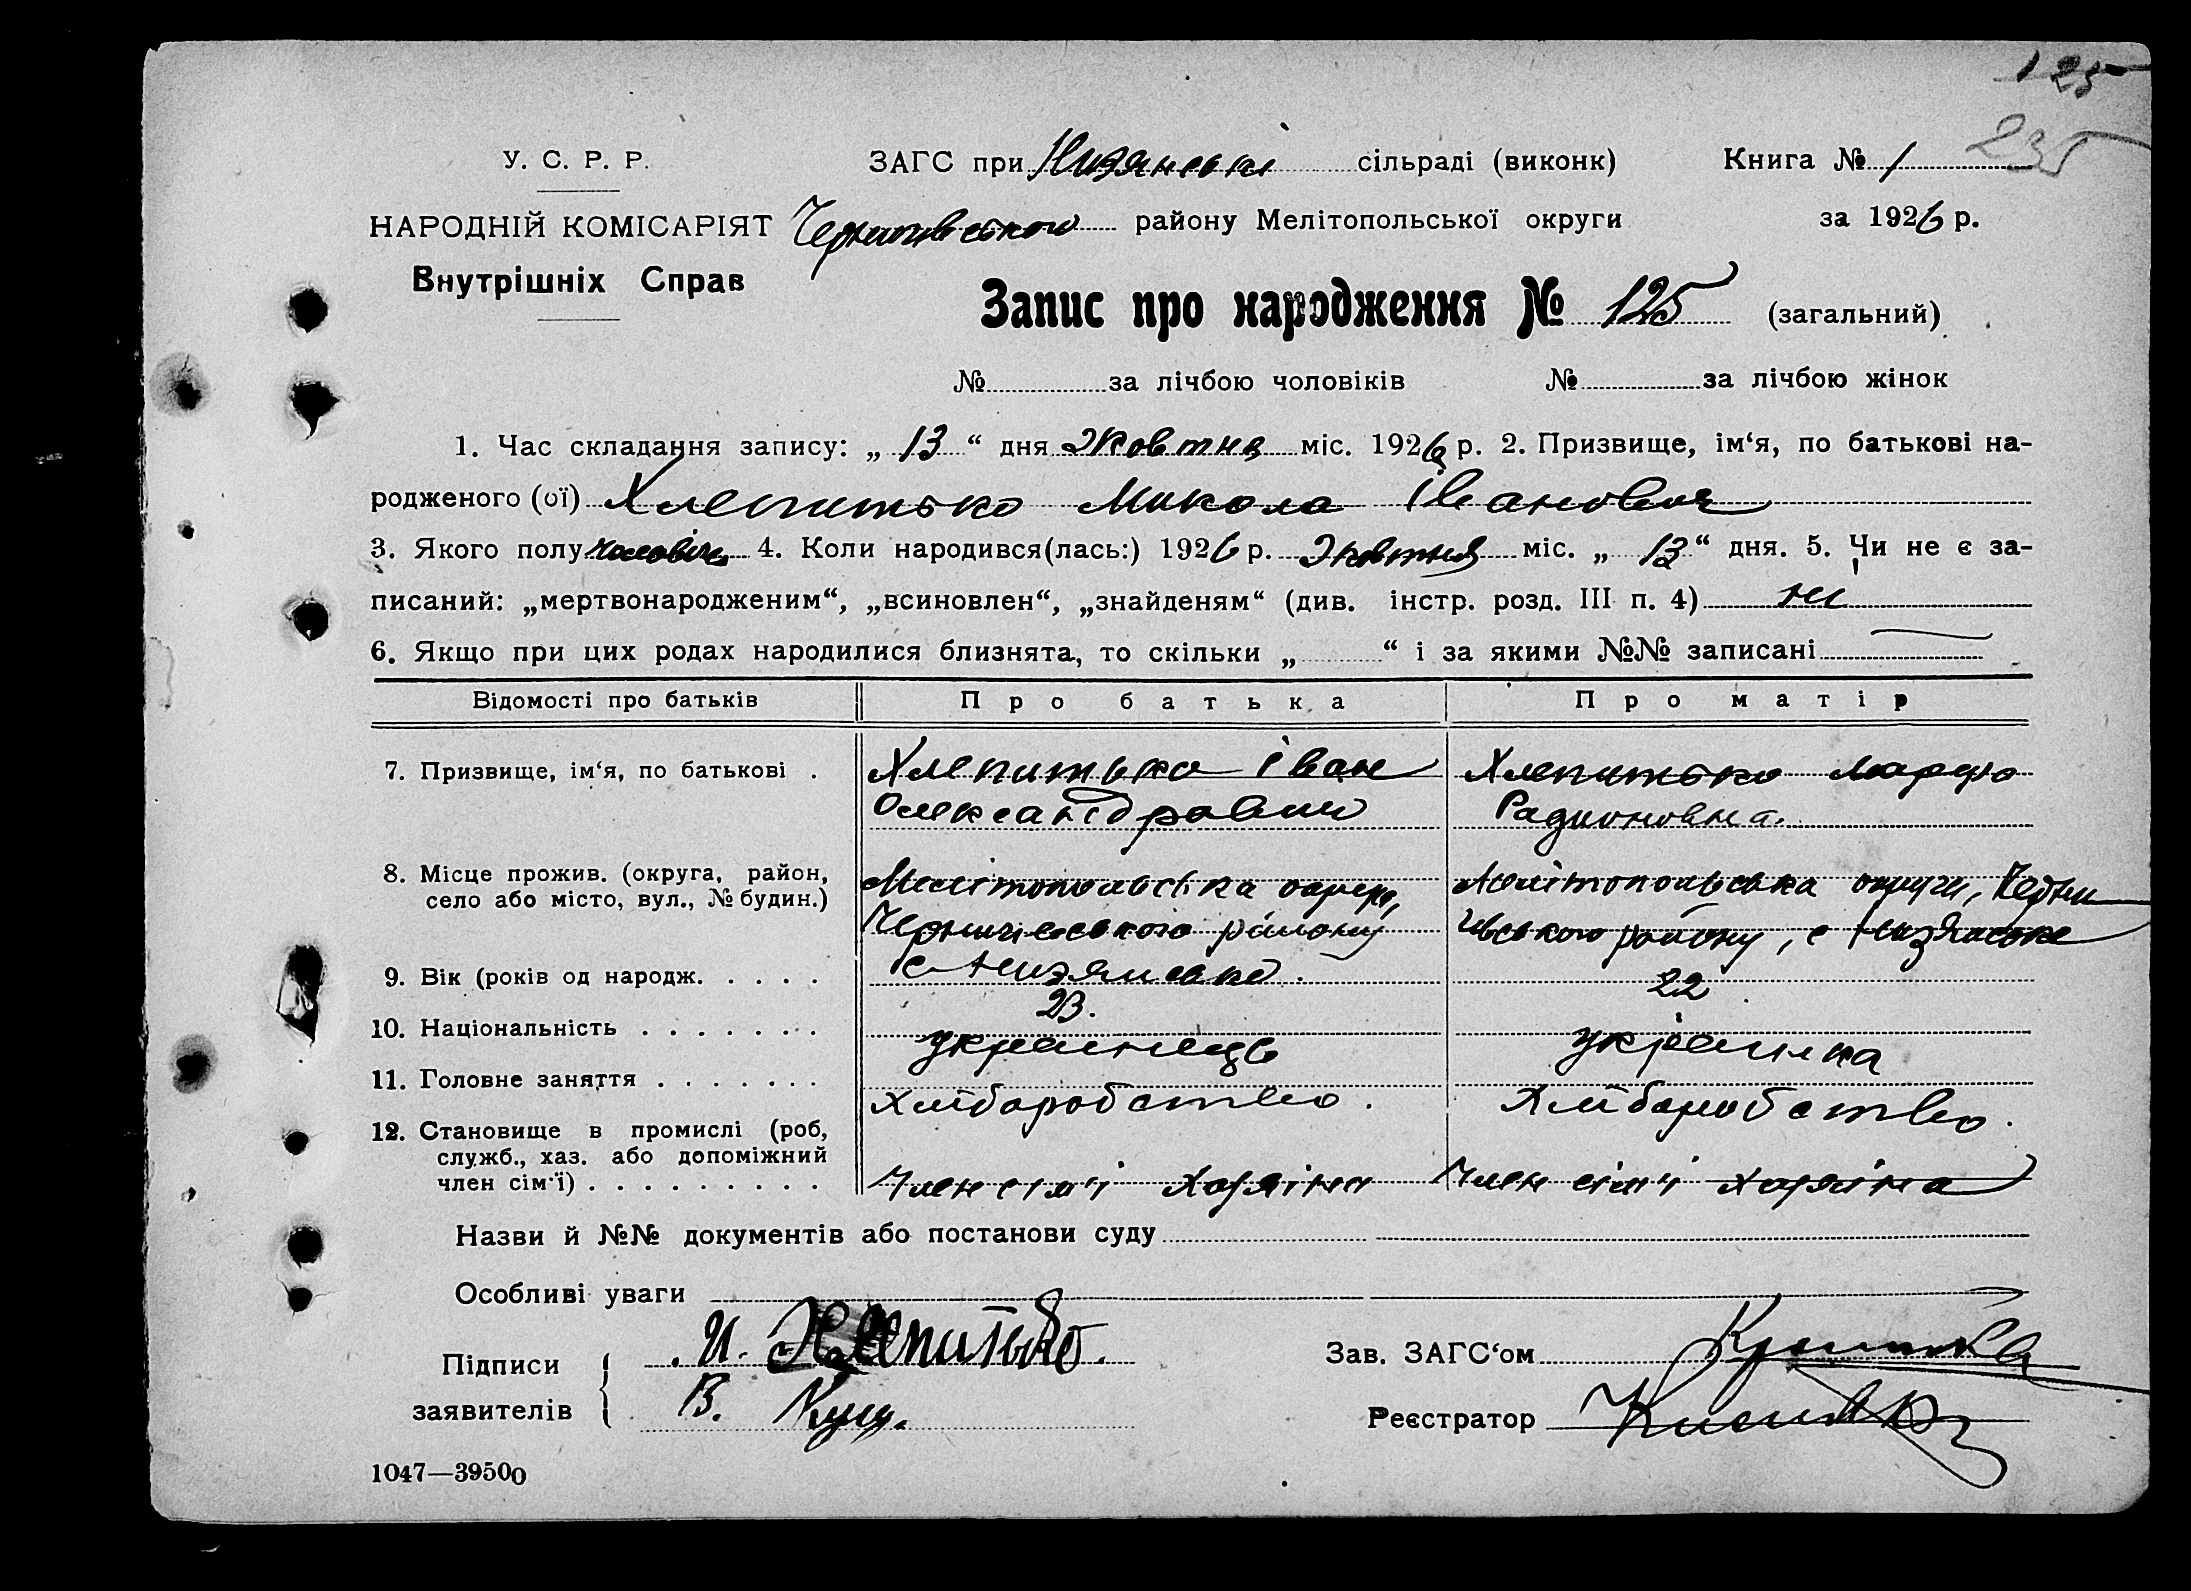 125
235
У. С. Р. Р.
ЗАГС при Низянські сільраді (виконк)
Книга № 1
НАРОДНІЙ КОМІСАРІЯТ
району Мелітопольської округи
за 1926 р.
Внутрішніх Справ
Запис про народження № 125 (загальний)
№ за лічбою чоловіків № за лічбою жінок
1. Час складання запису: „ 13 “ дня Жовтня міс. 1926 р. 2. Призвище, ім‘я, по батькові на-
родженого (ої) Хлепитько Микола Іванович
3. Якого полу чоловіч 4. Коли народився(лась:) 1926 р. Жовтня міс. „ 13 “ дня. 5. Чи не є за-
писаний: „мертвонародженим“, „всиновлен“, „знайденям“ (див. інстр. розд. III п. 4) ні
6. Якщо при цих родах народилися близнята, то скільки „ “ і за якими №№ записані
Відомості про батьків Про батька Про матір
7. Призвище, ім‘я, по батькові . Хлепитько Іван Хлепитько Марфа
Олександрович Радионовна.
8. Місце прожив. (округа, район, Мелітопольська округа, Мелітопольська округи, Черни
село або місто, вул., № будин.) району гівського району, с Низяньске
9. Вік (років од народж. . . . . с Низянське.
23. 22
10. Національність . . . . . . .
українець українка
11. Головне заняття . . . . . . .
Хліборобство. Хліборобство.
12. Становище в промислі (роб,
служб., хаз. або допоміжний
член сім‘ї) . . . . . . . . . Член сім'ї хазяїна Член сім'ї хазяїна
Назви й №№ документів або постанови суду
Особливі уваги
Підписи И. Хлепитько.
Зав. ЗАГС‘ом
заявителів В. Кущ.
Реєстратор
1047—39500